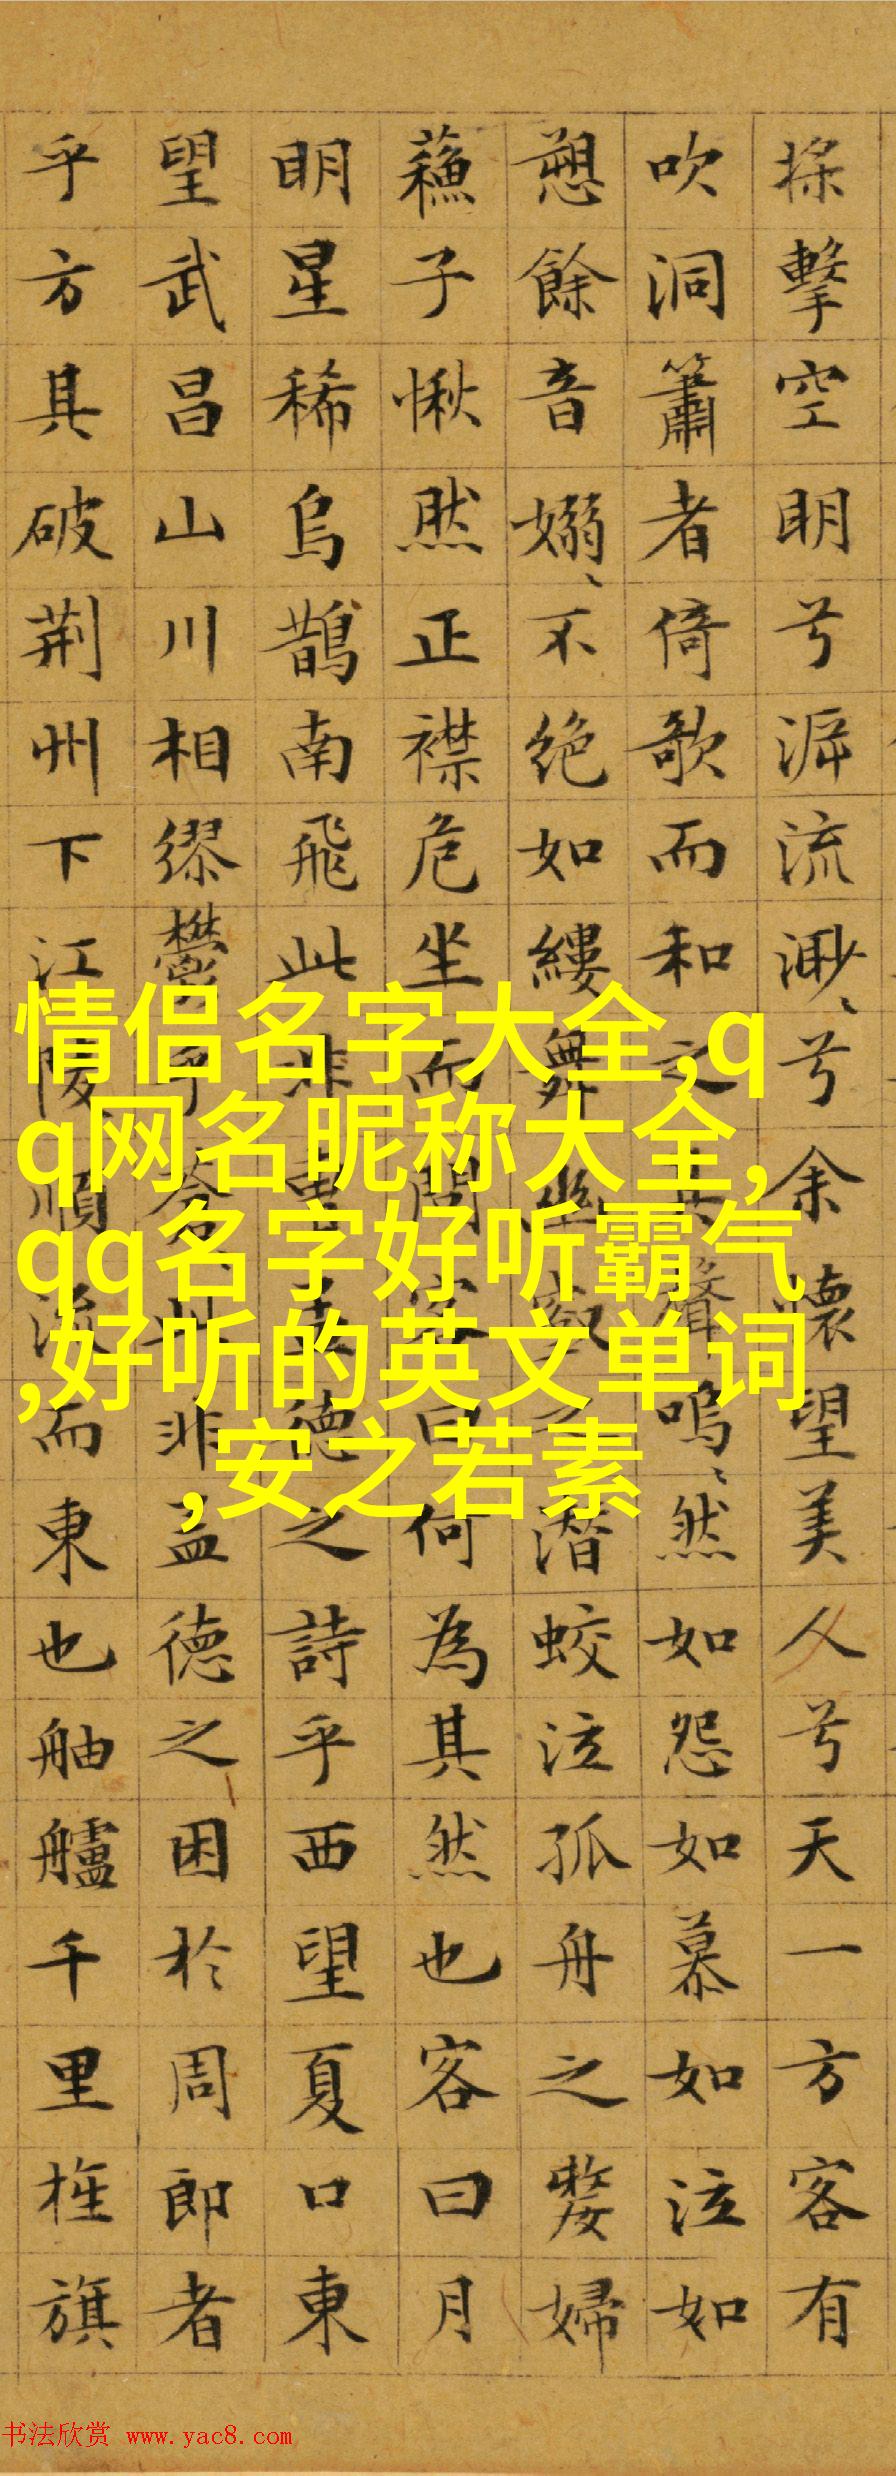 擊空明兮泝流渺〻兮余懷望美人兮天一方客有
吹洞簫者倚歌而和之其聲嗚〻然如怨如慕如泣如
愬餘音嫋〻不絕如縷舞幽壑之潛蛟泣孤舟之嫠婦
蘓子愀然正襟危坐而問客曰何為其然也客曰月
明星稀烏鵲南飛此非曹孟德之詩乎西望夏口東
望武昌山川相繆鬱乎蒼〻此非孟德之困於周郎者
乎方其破荊州下江陵順流而東也舳艫千里旌旗
情侣名字大全,q
q网名昵称大全,
qq名字好听霸气
,好听的英文单词
,安之若素
书法欣赏 www.yac8.com